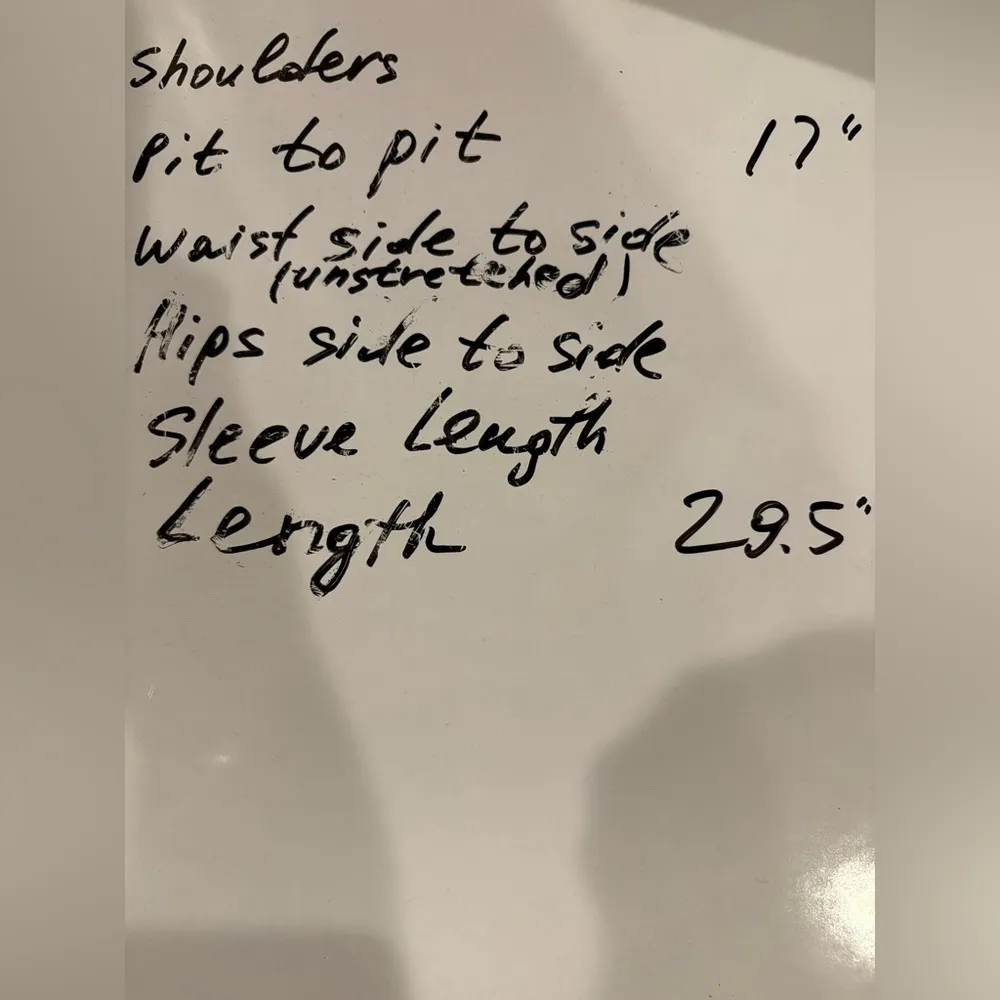 shoulders
Pit to pit 17"
waist side to side
(unstretched)
Hips side to side
Sleeve Length
Length 29.5"